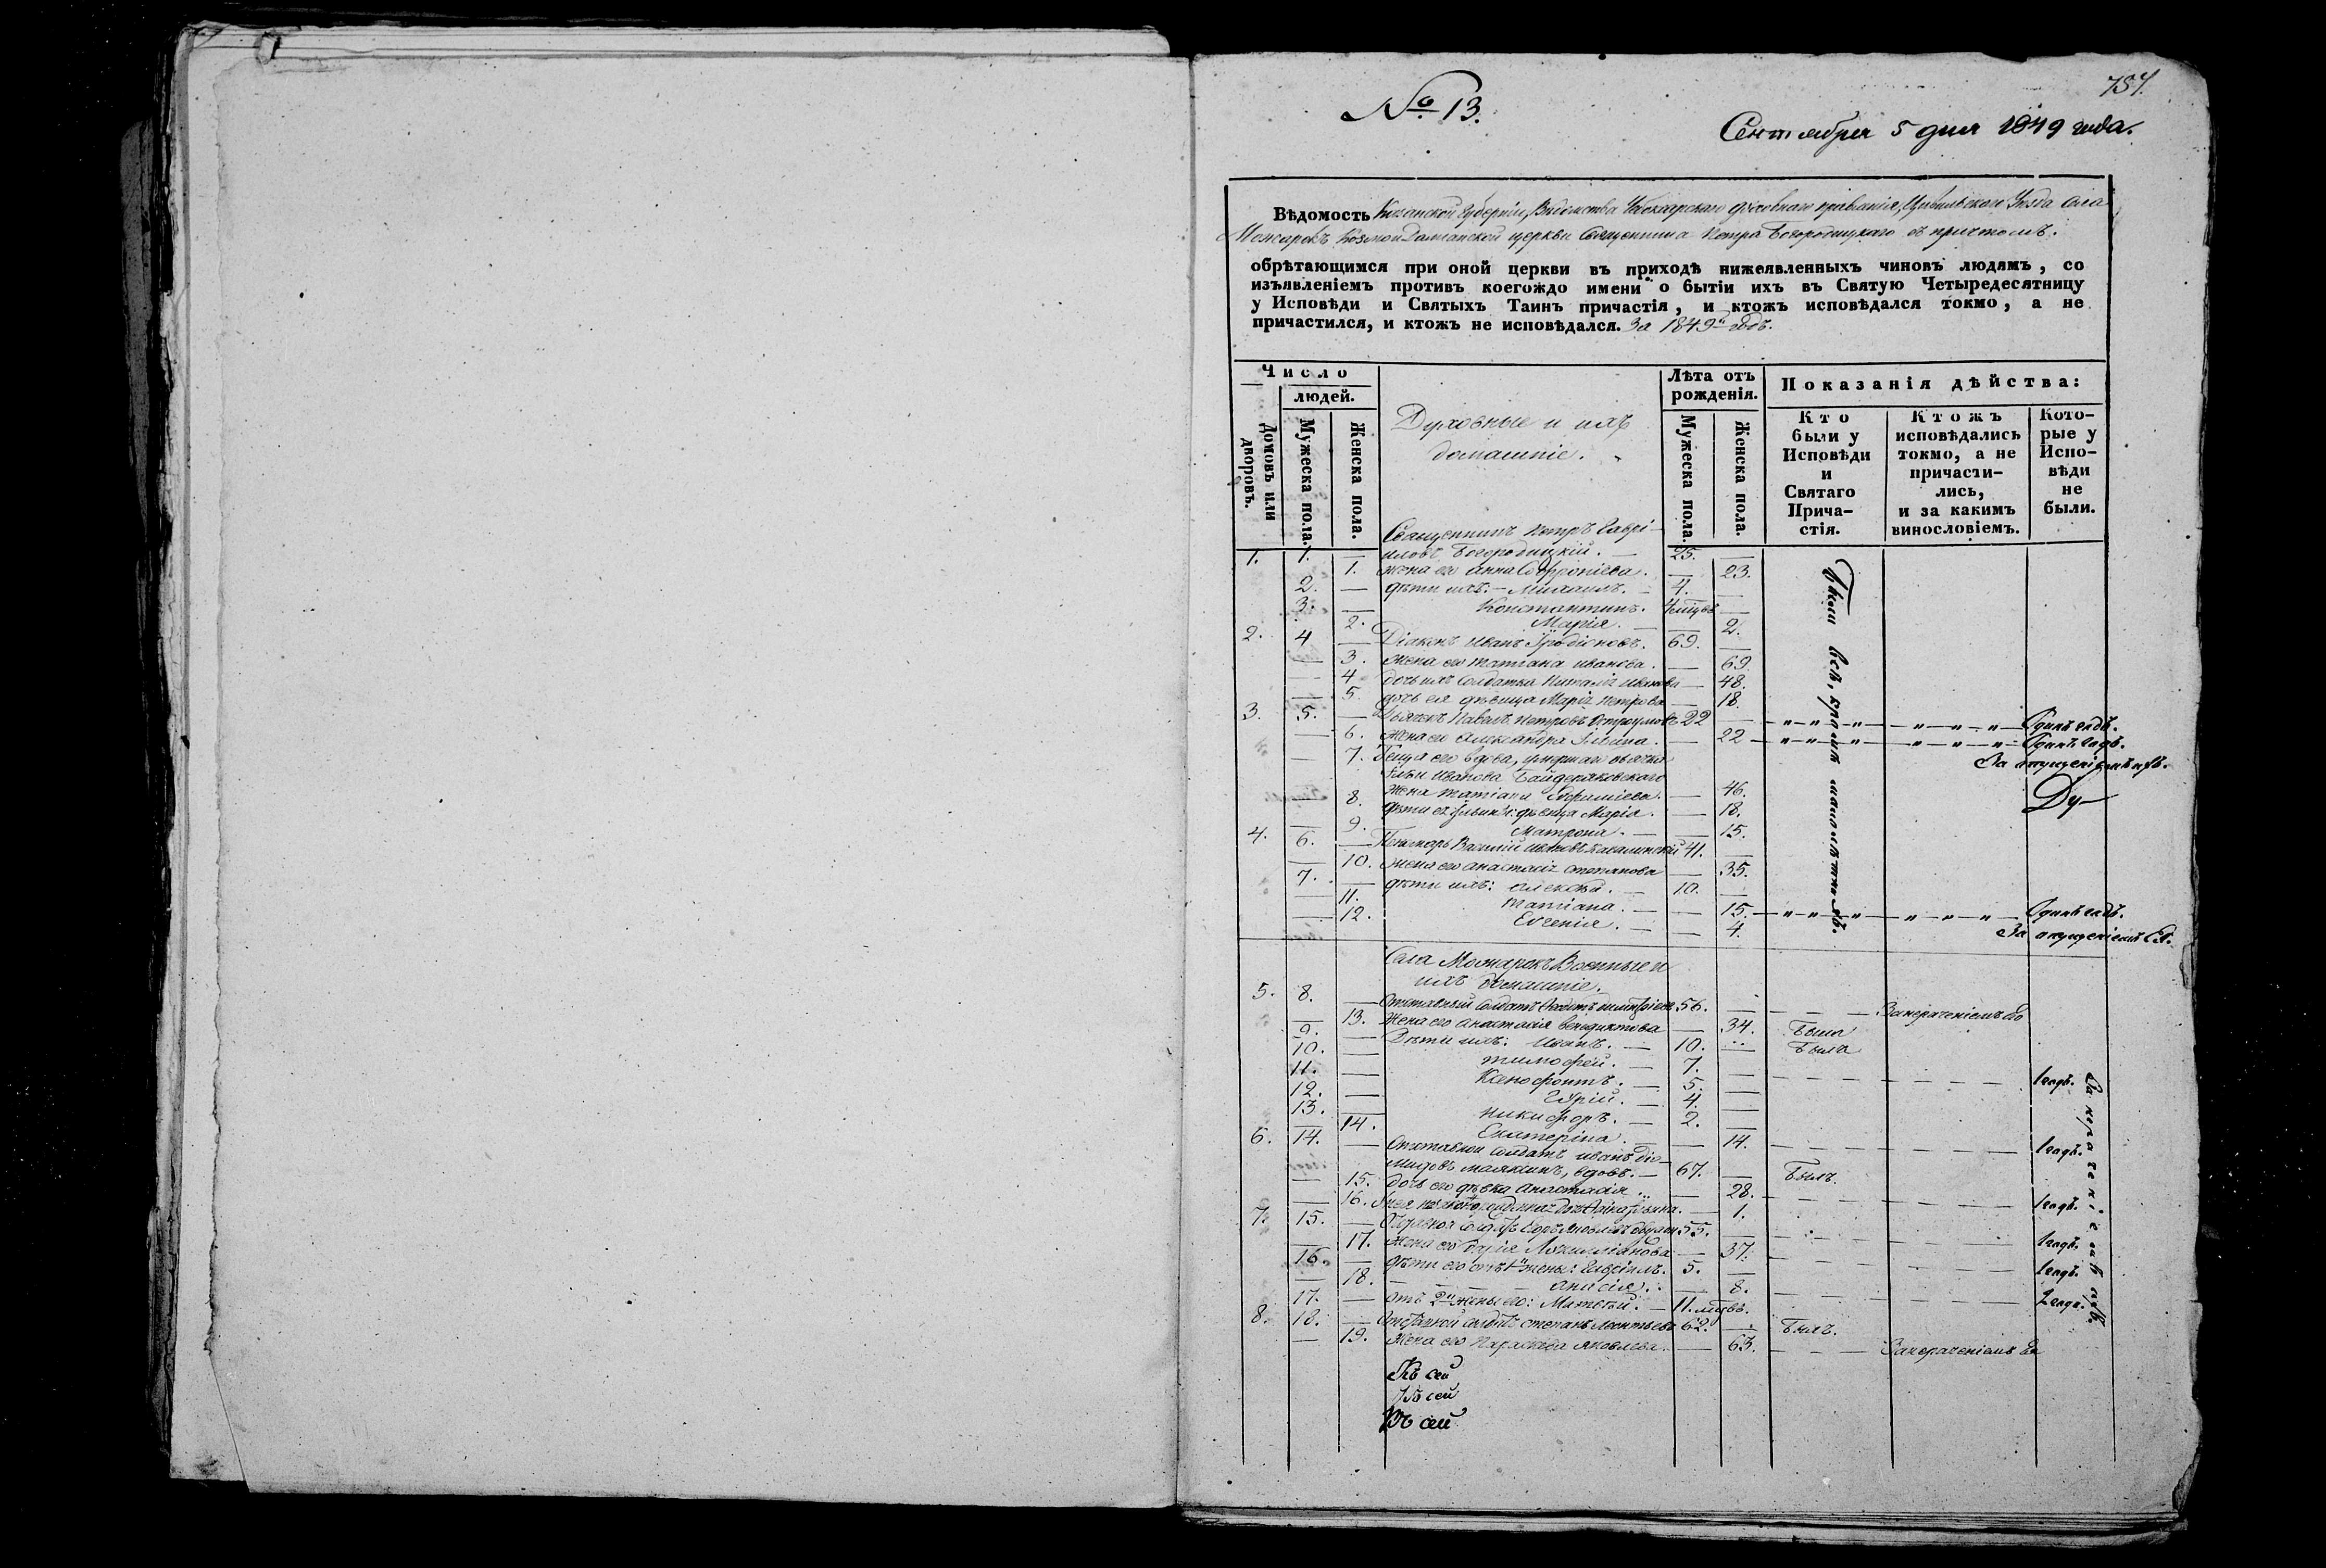 757.
№ 13.
Сентября 5 дня 1849 года.
Вѣдомость Казанской Губерніи, Вѣдомства Чебоксарскаго духовнаго правленія, Цивильскаго Уѣзда села
Можарокъ Козмодаміанской церкви Священника Петра Богородицкаго съ причтомъ.
обрѣтающимся при оной церкви въ приходѣ нижеявленныхъ чиновъ людямъ, со
изъявленіемъ противъ коегождо имени о бытіи ихъ въ Святую Четыредесятницу
у Исповѣди и Святыхъ Таинъ причастія, и ктожъ исповѣдался токмо, а не
причастился, и ктожъ не исповѣдался. За 1849й годъ.
Число
людей.
Домовъ или дворовъ.
Мужеска пола.
Женска пола.
Духовные и ихъ
домашніе.
Лѣта отъ
рожденія.
Мужеска пола.
Женска пола.
Показанія дѣйства:
Кто
были у
Исповѣди
и
Святаго
Прича-
стія.
Ктожъ
исповѣдались
токмо, а не
причасти-
лись,
и за какимъ
винословіемъ.
Кото-
рые у
Испо-
вѣди
не
были.
Были всѣ, кромѣ малолѣтнихъ.
Священникъ Петръ Гаврі-
1. 1. — иловъ Богородицкій. — 25. —
1. жена его Анна Софроніева. — 23.
2. — дѣти ихъ: Михаилъ. — 4. —
3. — Константинъ. 4 мѣцовъ —
2. Марія. — 2.
2. 4 — Діаконъ Иванъ Иродіоновъ. 69. —
— 3. жена его Татіана Иванова. — 69.
— 4 дочь ихъ солдатка Наталія Иванова — 48.
— 5. дочь ея дѣвица Марія Петрова — 18.
3. 5. — Дьячекъ Павелъ Петровъ 22 — Одинъ годъ.
— 6. Жена его Александра Ильина. — 22 Одинъ годъ.
За опущеніемъ
— 7. Теща его вдова, умершаго дьячка
Ильи Иванова Байдеряковскаго
жена Татіана — 46.
— 8. дѣти ея Ильины: дѣвица Марія. — 18.
9. Матрона. — 15.
4. 6. — Пономарь Василій Ивановъ 41. —
— 10. Жена его Анастасія Степанова — 35.
7. — дѣти ихъ: Алексѣй. — 10. —
— 11. Татіана. — 15. Одинъ годъ.
— 12. Евгенія. — 4.
За опущеніемъ
Села Можарокъ Военные и
ихъ домашніе.
5. 8. — Отставный солдатъ 56. — За нераченіемъ его
— 13. Жена его Анастасія Венедиктова — 34. Была
9. — Дѣти ихъ: Иванъ. — 10. Былъ
10. — Тимофей. — 7. —
11. — Ксенофонтъ. — 5. — 1 годъ.
12. — Гурій. — 4. —
13. — Никифоръ. — 2. —
— 14. Екатерина. — 14. 1 годъ.
6. 14. — Отставной солдатъ Иванъ Діо-
мидовъ Маякинъ, вдовъ. — 67. — Былъ.
— 15. дочь его дѣвка Анастасія — 28. 1 годъ.
— 16. — 1.
7. 15. — 55. 1 годъ.
— 17. жена его — 37. 1 годъ.
16. — дѣти его отъ 1й жены: Гавріилъ. 5. —
— 18. Анисія. — 8. 2 года.
17. — отъ 2й жены его: Матвѣй. — 11. мцовъ.
8. 18. — Отставной солдатъ Степанъ Леонтьевъ 62. — Былъ.
— 19. Жена его Параскева Яковлева. — 63. За нераченіемъ Ея
За нераченіемъ ихъ.
Въ сей
Въ сей
Въ сей